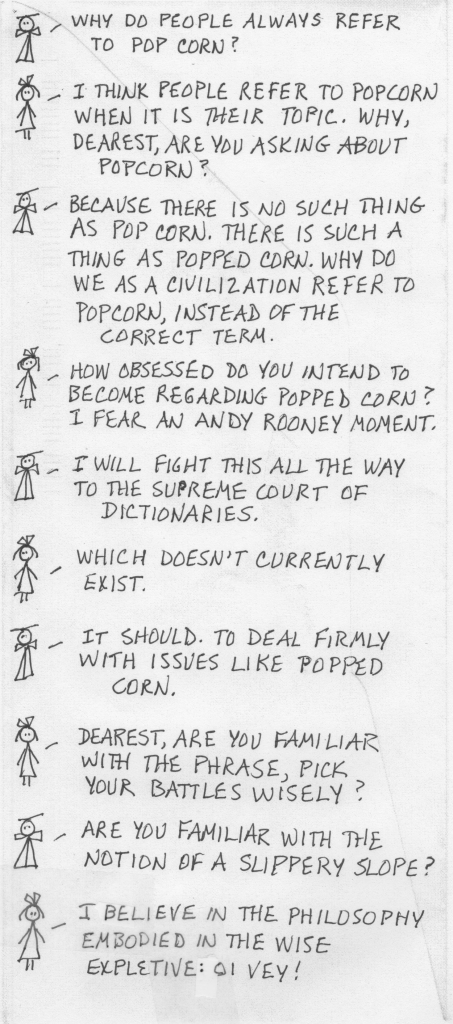 WHY DO PEOPLE ALWAYS REFER
TO POP CORN?
I THINK PEOPLE REFER TO POPCORN
WHEN IT IS THEIR TOPIC. WHY,
DEAREST, ARE YOU ASKING ABOUT
POPCORN?
BECAUSE THERE IS NO SUCH THING
AS POP CORN. THERE IS SUCH A
THING AS POPPED CORN. WHY DO
WE AS A CIVILIZATION REFER TO
POPCORN, INSTEAD OF THE
CORRECT TERM.
HOW OBSESSED DO YOU INTEND TO
BECOME REGARDING POPPED CORN?
I FEAR AN ANDY ROONEY MOMENT.
I WILL FIGHT THIS ALL THE WAY
TO THE SUPREME COURT OF
DICTIONARIES.
WHICH DOESN'T CURRENTLY
EXIST.
IT SHOULD. TO DEAL FIRMLY
WITH ISSUES LIKE POPPED
CORN.
DEAREST, ARE YOU FAMILIAR
WITH THE PHRASE, PICK
YOUR BATTLES WISELY?
ARE YOU FAMILIAR WITH THE
NOTION OF A SLIPPERY SLOPE?
I BELIEVE IN THE PHILOSOPHY
EMBODIED IN THE WISE
EXPLETIVE: OI VEY!